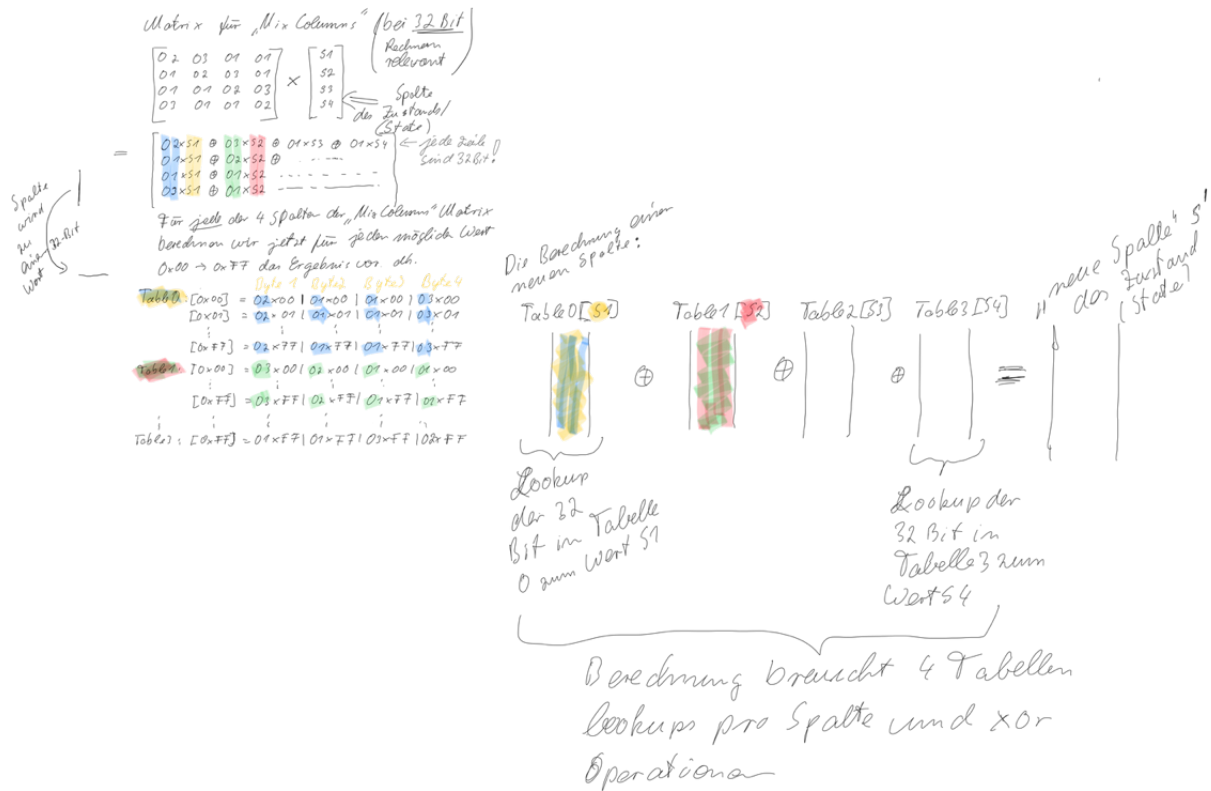 Matrix für „Mix Columns" (bei 32 Bit
Rechnern
relevant)
02 03 01 01
01 02 03 01
01 01 02 03
03 01 01 02
×
S1
S2
S3
S4
Spalte
des Zustands/
(State)
= 02×S1 ⊕ 03×S2 ⊕ 01×S3 ⊕ 01×S4
01×S1 ⊕ 02×S2 ⊕ ------
01×S1 ⊕ 01×S2 ------
02×S1 ⊕ 01×S2 ------
jede Zeile
sind 32 Bit!
Spalte
wird
zu
einem 32-Bit
Wort
Für jede der 4 Spalten der „Mix Columns" Matrix
berechnen wir jetzt für jeden möglich Wert
0x00 → 0xFF das Ergebnis vor. dh.
Byte 1 Byte2 Byte3 Byte 4
Table0: [0x00] = 02×00 | 01×00 | 01×00 | 03×00
[0x01] = 02×01 | 01×01 | 01×01 | 03×01
[0xFF] = 02×FF | 01×FF | 01×FF | 03×FF
Table1: [0x00] = 03×00 | 02×00 | 01×00 | 01×00
[0xFF] = 03×FF | 02×FF | 01×FF | 01×FF
Table3: [0xFF] = 01×FF | 01×FF | 03×FF | 02×FF
Die Berechnung einer
neuen Spalte:
Table0[S1] Table1[S2] Table2[S3] Table3[S4]
⊕ ⊕ ⊕ =
„neue Spalte" S'
des Zustand
(State)
Lookup
der 32
Bit in Tabelle
0 zum Wert S1
Lookup der
32 Bit in
Tabelle 3 zum
Wert S4
Berechnung braucht 4 Tabellen
lookups pro Spalte und xor
Operationen